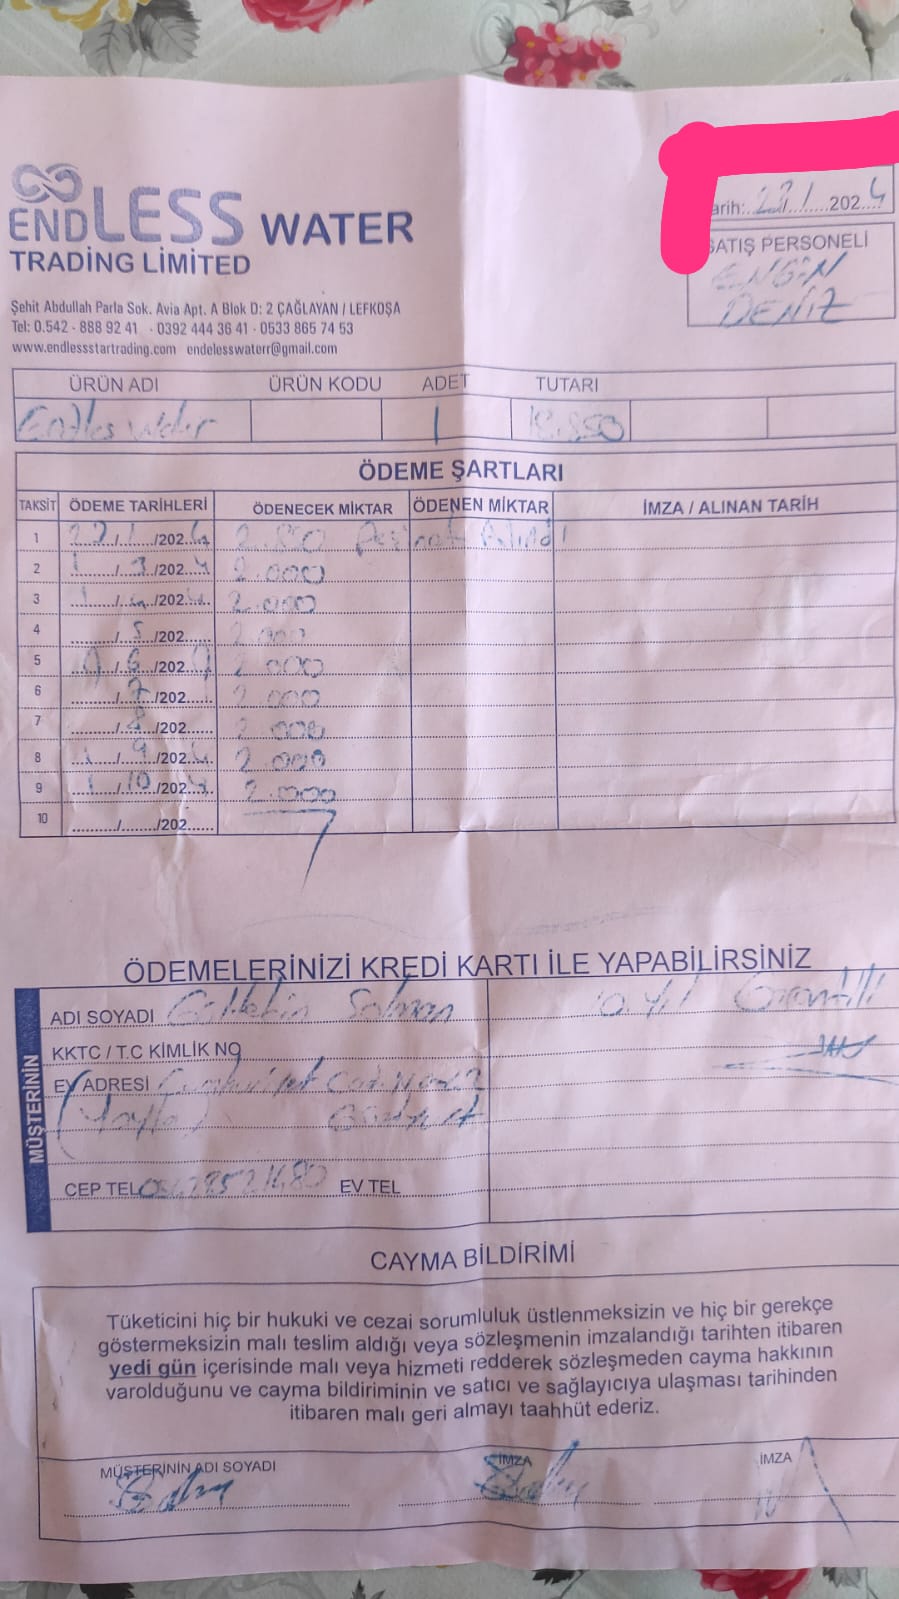 ENDLESS WATER
TRADİNG LİMİTED
arih: 23/1/2024
SATIŞ PERSONELİ
ENGİN
DENİZ
Şehit Abdullah Parla Sok. Avia Apt. A Blok D: 2 ÇAĞLAYAN / LEFKOŞA
Tel: 0.542 - 888 92 41 · 0392 444 36 41 · 0533 865 74 53
www.endlessstartrading.com endelesswaterr@gmail.com
ÜRÜN ADI ÜRÜN KODU ADET TUTARI
1 18.850
ÖDEME ŞARTLARI
TAKSİT ÖDEME TARİHLERİ ÖDENECEK MİKTAR ÖDENEN MİKTAR İMZA / ALINAN TARİH
1 /202 2.850 Peşinat Alındı
2 1/3/2024 2.000
3 /202 2.000
4 /5/202 2.000
5 /6/202 2.000
6 /7/202 2.000
7 /8/202 2.000
8 1/9/2024 2.000
9 1/10/202 2.000
10 / /202
ÖDEMELERİNİZİ KREDİ KARTI İLE YAPABİLİRSİNİZ
MÜŞTERİNİN
ADI SOYADI Salman
10. yıl Garantili
KKTC / T.C KİMLİK NO
EV ADRESİ
CEP TEL EV TEL
CAYMA BİLDİRİMİ
Tüketicini hiç bir hukuki ve cezai sorumluluk üstlenmeksizin ve hiç bir gerekçe
göstermeksizin malı teslim aldığı veya sözleşmenin imzalandığı tarihten itibaren
yedi gün içerisinde malı veya hizmeti redderek sözleşmeden cayma hakkının
varolduğunu ve cayma bildiriminin ve satıcı ve sağlayıcıya ulaşması tarihinden
itibaren malı geri almayı taahhüt ederiz.
MÜŞTERİNİN ADI SOYADI İMZA İMZA